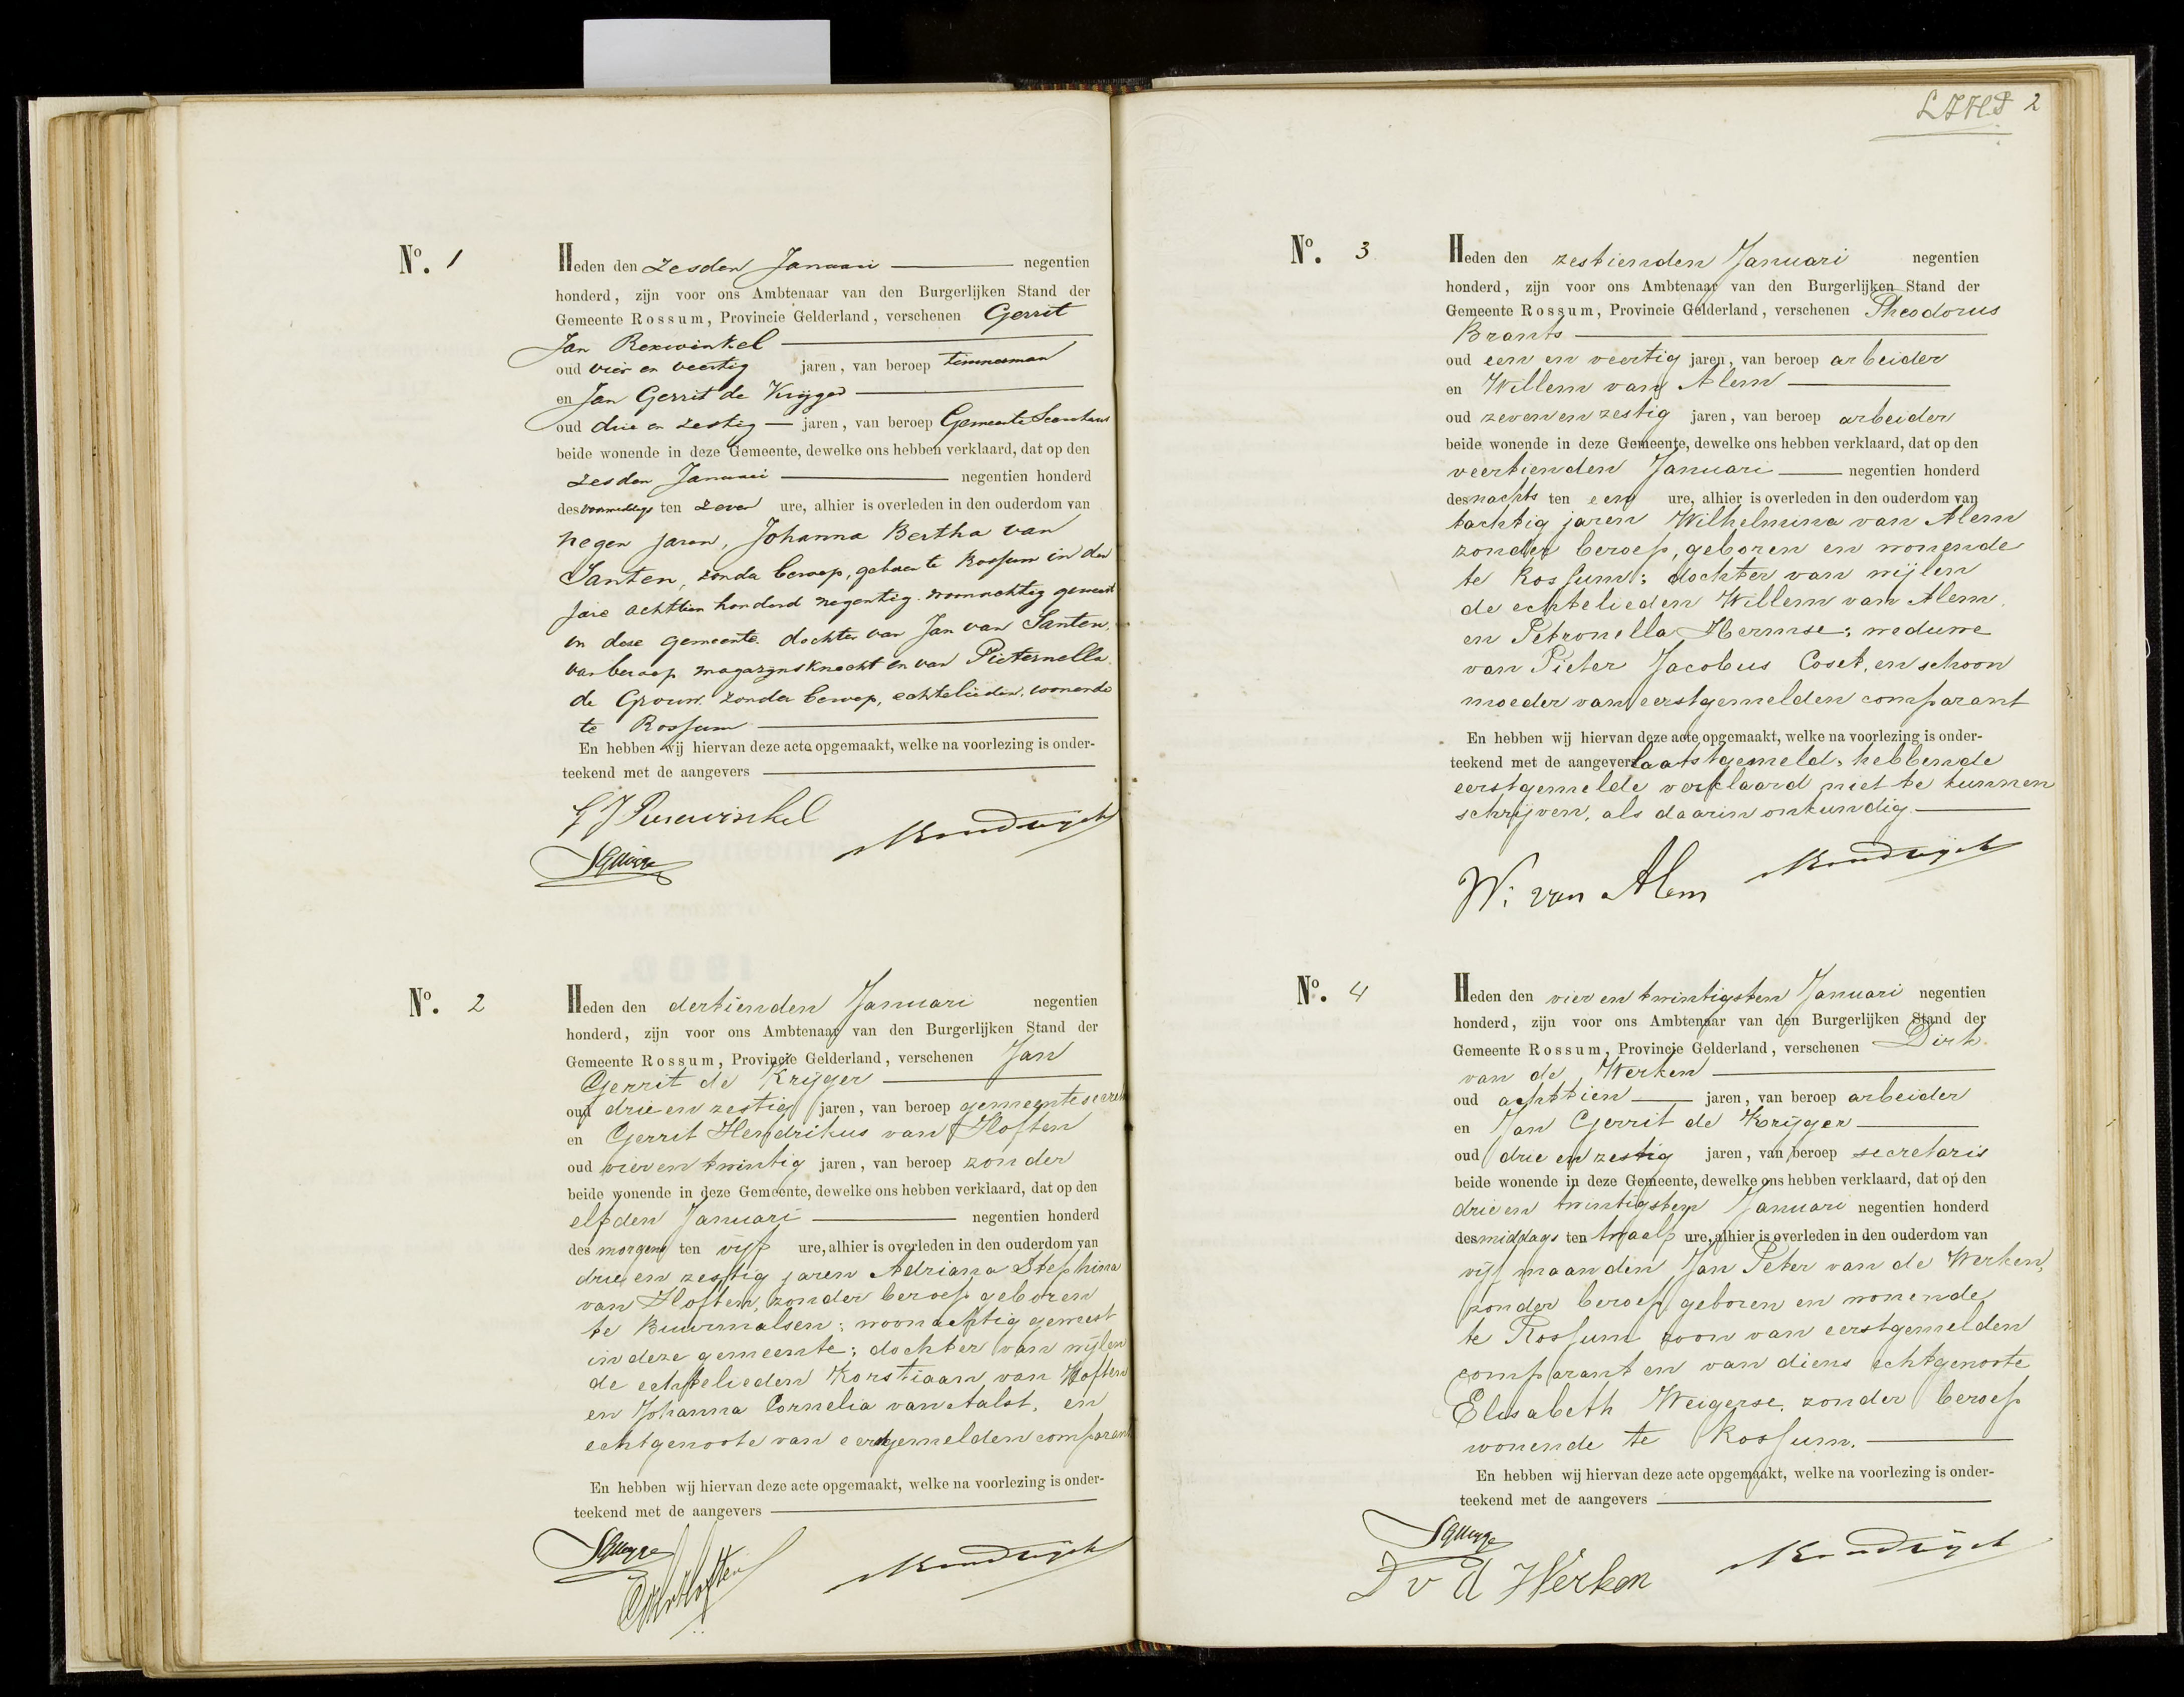 2
No. 1
Heden den zesden Januari negentien
honderd, zijn voor ons Ambtenaar van den Burgerlijken Stand der
Gemeente Rossum, Provincie Gelderland, verschenen Gerrit
Jan
oud vier en veertig jaren, van beroep timmerman
en Jan Gerrit de Krijger
oud drie en zestig jaren, van beroep Gemeente Secretaris
beide wonende in deze Gemeente, dewelke ons hebben verklaard, dat op den
zesden Januari negentien honderd
des voormiddags ten zeven ure, alhier is overleden in den ouderdom van
negen jaren, Johanna Bertha van
Santen, zonder beroep, geboren te Rossum in den
jare achttien honderd negentig. woonachtig geweest
in deze gemeente. dochter van Jan van Santen,
van beroep magazijnsknecht en van Pieternella
de Gouw. zonder beroep, echtelieden, wonende
te Rossum
En hebben wij hiervan deze acte opgemaakt, welke na voorlezing is onder-
teekend met de aangevers
No. 2
Heden den dertienden Januari negentien
honderd, zijn voor ons Ambtenaar van den Burgerlijken Stand der
Gemeente Rossum, Provincie Gelderland, verschenen Jan
Gerrit de Krijger
oud drie en zestig jaren, van beroep gemeentesecret
en Gerrit Hendrikus van Hoften
oud vier en twintig jaren, van beroep zonder
beide wonende in deze Gemeente, dewelke ons hebben verklaard, dat op den
elfden Januari negentien honderd
des morgens ten vijf ure, alhier is overleden in den ouderdom van
drie en zestig jaren Adriana Stephina
van Hoften, zonder beroep geboren
te Buurmalsen; woonachtig geweest
in deze gemeente; dochter van wijlen
de echtelieden Korstiaan van Hoften
en Johanna Cornelia van Aalst, en
echtgenoote van eerstgemelden comparant
En hebben wij hiervan deze acte opgemaakt, welke na voorlezing is onder-
teekend met de aangevers
No. 3
Heden den zestienden Januari negentien
honderd, zijn voor ons Ambtenaar van den Burgerlijken Stand der
Gemeente Rossum, Provincie Gelderland, verschenen Theodorus
Brants
oud een en veertig jaren, van beroep arbeider
en Willem van Alem
oud zeven en zestig jaren, van beroep arbeider
beide wonende in deze Gemeente, dewelke ons hebben verklaard, dat op den
veertienden Januari negentien honderd
des nachts ten een ure, alhier is overleden in den ouderdom van
tachtig jaren Wilhelmina van Alem
zonder beroep, geboren en wonende
te Rossum; dochter van wijlen
de echtelieden Willem van Alem
en Petronella Hermse; weduwe
van Pieter Jacobus Coset, en schoon
moeder van eerstgemelden comparant
En hebben wij hiervan deze acte opgemaakt, welke na voorlezing is onder-
teekend met de aangever laatstgemeld, hebbende
eerstgemelde verklaard niet te kunnen
schrijven, als daarin onkundig
W. van Alem
No. 4
Heden den vier en twintigsten Januari negentien
honderd, zijn voor ons Ambtenaar van den Burgerlijken Stand der
Gemeente Rossum, Provincie Gelderland, verschenen Dirk
van de Werken
oud achttien jaren, van beroep arbeider
en Jan Gerrit de Krijger
oud drie en zestig jaren, van beroep secretaris
beide wonende in deze Gemeente, dewelke ons hebben verklaard, dat op den
drie en twintigsten Januari negentien honderd
des middags ten twaalf ure, alhier is overleden in den ouderdom van
vijf maanden Jan Peter van de Werken,
zonder beroep, geboren en wonende
te Rossum zoon van eerstgemelden
comparant en van diens echtgenoote
Elisabeth Weigerse, zonder beroep
wonende te Rossum.
En hebben wij hiervan deze acte opgemaakt, welke na voorlezing is onder-
teekend met de aangevers
D v d Werken